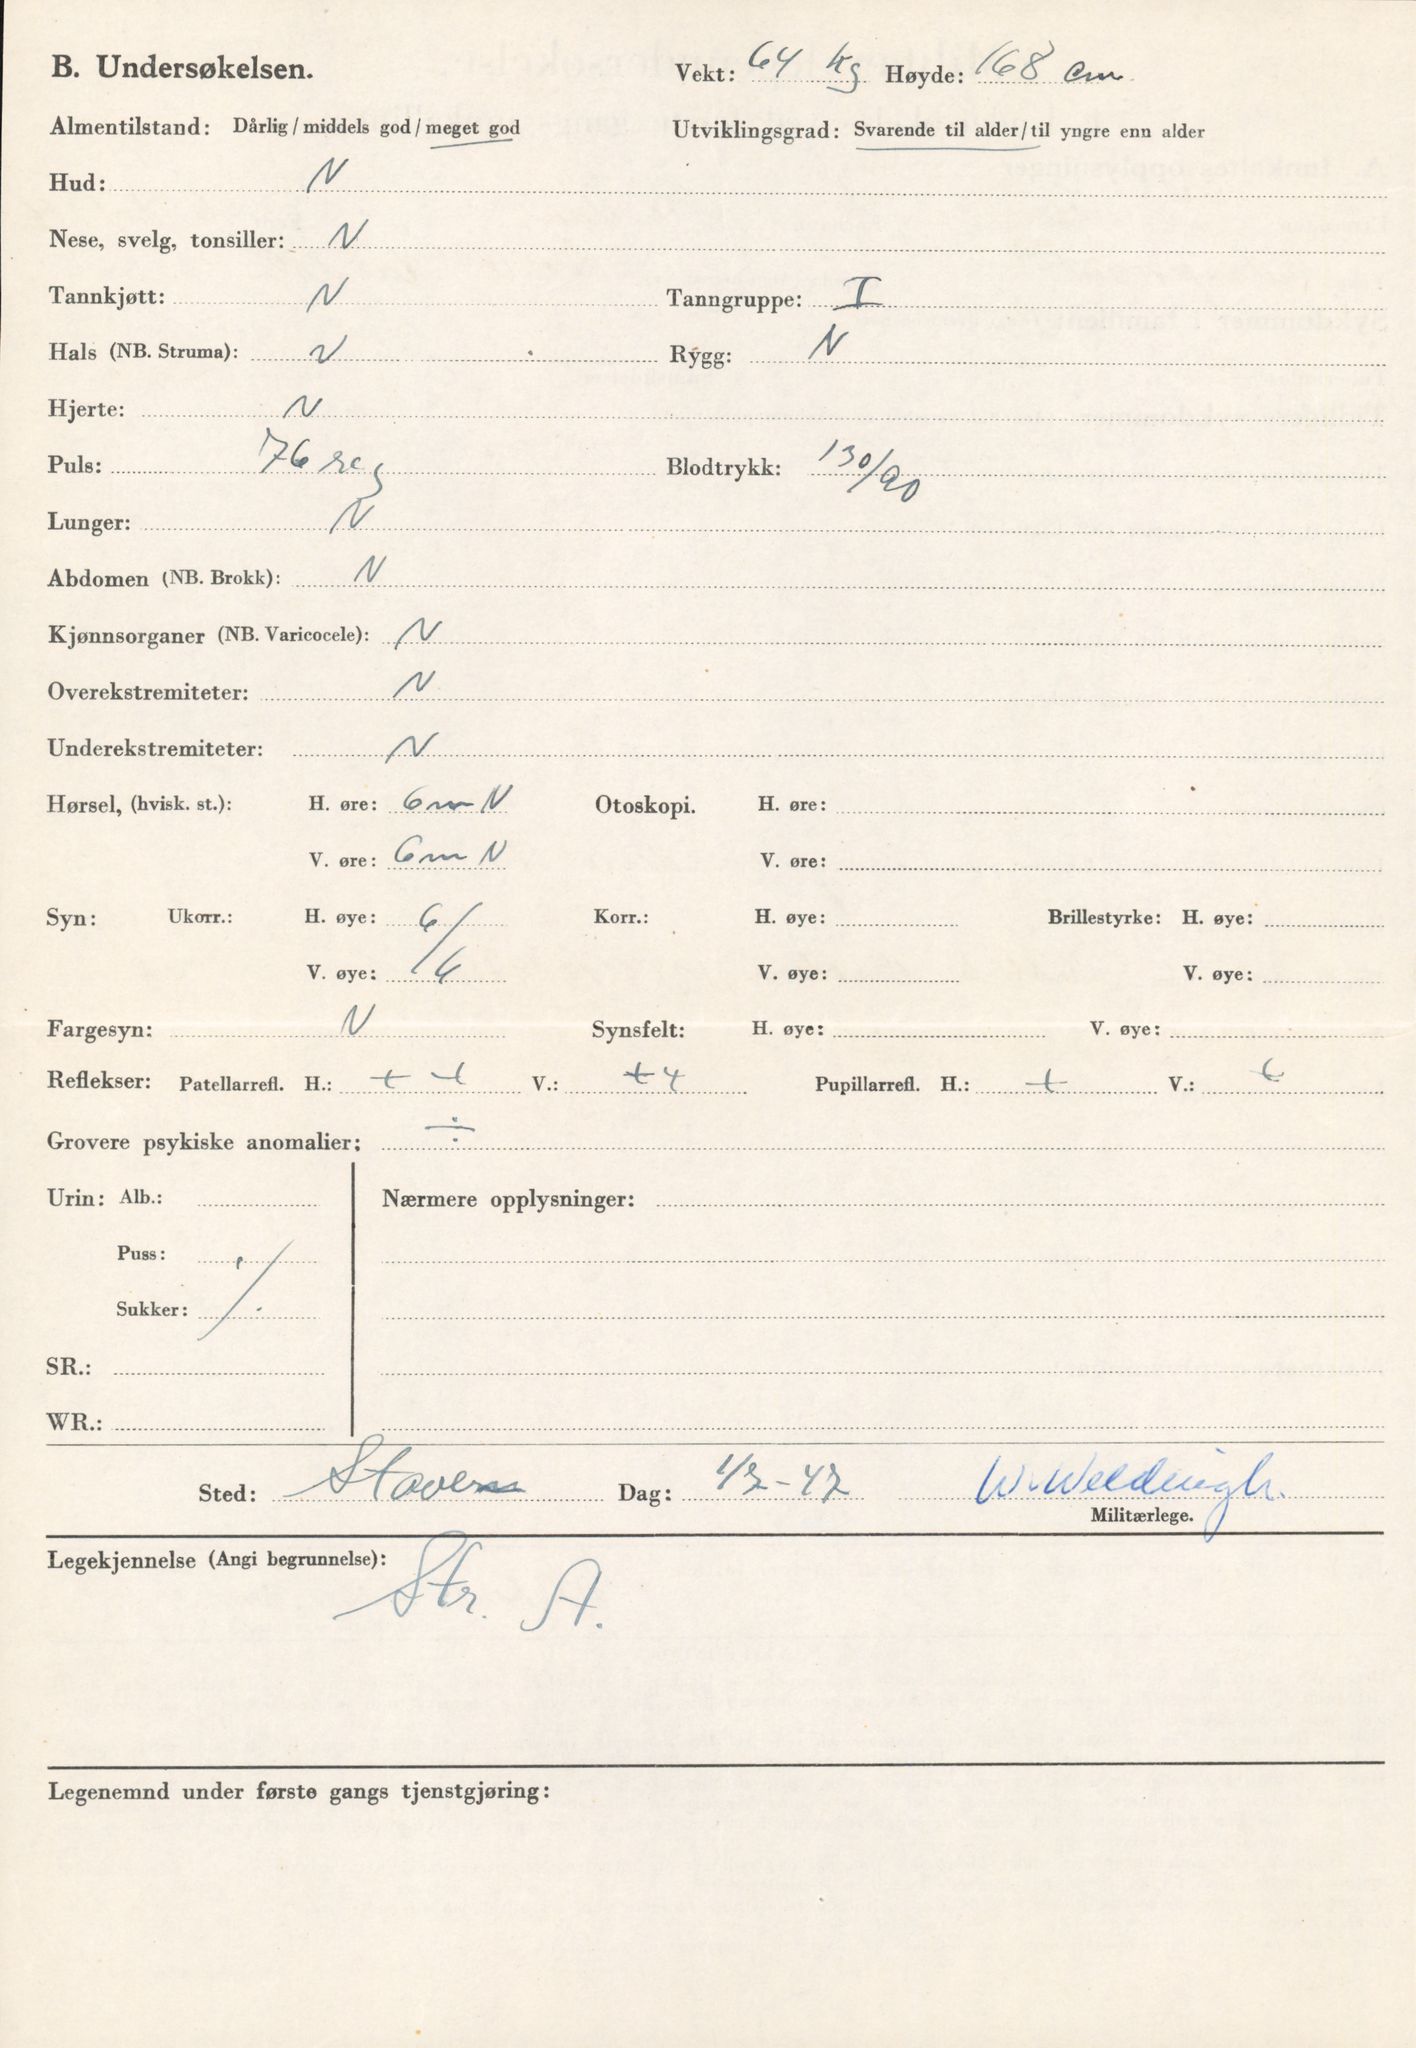 B. Undersøkelsen. Vekt: 64 kg Høyde: 168 cm
Almentilstand: Dårlig/middels god/meget god Utviklingsgrad: Svarende til alder/til yngre enn alder
Hud: N
Nese, svelg, tonsiller: N
Tannkjøtt: N Tanngruppe: I
Hals (NB. Struma): N Rygg: N
Hjerte: N
Puls: 76 reg Blodtrykk: 130/90
Lunger: N
Abdomen (NB. Brokk): N
Kjønnsorganer (NB. Varicocele): N
Overekstremiteter: N
Underekstremiteter: N
Hørsel, (hvisk. st.): H. øre: 6m N Otoskopi. H. øre:
V. øre: 6m N V. øre:
Syn: Ukorr.: H. øye: 6/ Korr.: H. øye: Brillestyrke: H. øye:
V. øye: 6 V. øye: V. øye:
Fargesyn: N Synsfelt: H. øye: V. øye:
Reflekser: Patellarrefl. H.: + + V.: + + Pupillarrefl. H.: + V.: +
Grovere psykiske anomalier: ÷
Urin: Alb.: Nærmere opplysninger:
Puss: ./.
Sukker:
SR.:
WR.:
Sted: Stavern Dag: 1/2-47
Militærlege.
Legekjennelse (Angi begrunnelse):
Str. A.
Legenemnd under første gangs tjenstgjøring: